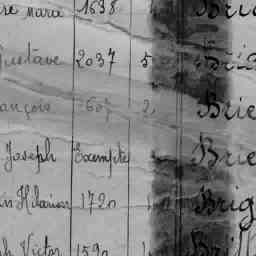 re Marie 1638 Bri
Gustave 2037 5 Bri
ançois 607 2 Brie
Joseph Exempté Brie
in Hilarion 1720 1 Brig
h Victor 1590 1 Bril